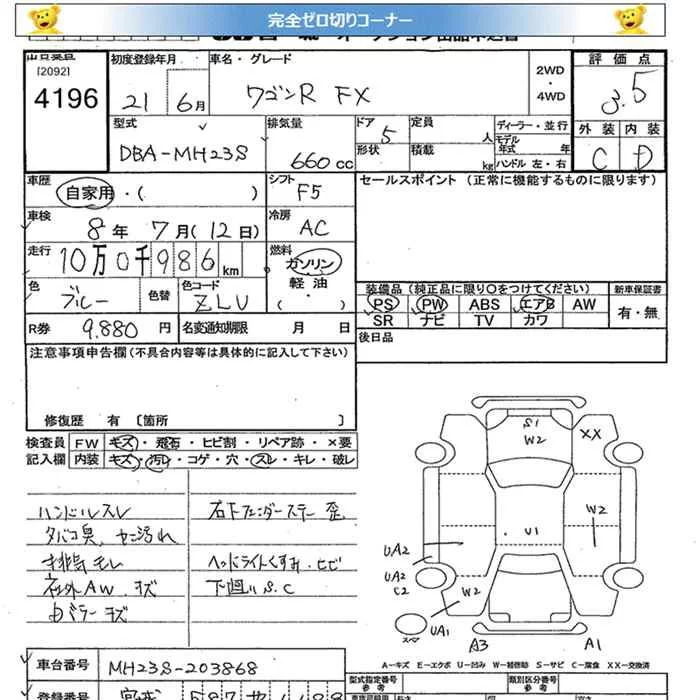 完全ゼロ切りコーナー
出品番号
[2092]
4196
初度登録年月
21 6月
車名・グレード
ワゴンR FX
2WD
・
4WD
評価点
3.5
外装 内装
C D
型式
DBA-MH23S
排気量
660cc
ドア 5
形状
定員 人
積載 kg
ディーラー・並行
モデル年式 年
ハンドル 左・右
車歴
自家用・( )
シフト
F5
セールスポイント (正常に機能するものに限ります)
車検
8年 7月(12日)
冷房
AC
走行
10万0千986km
燃料
ガソリン
軽油
・( )
色
ブルー
色替
色コード
ZLU
装備品(純正品に限り○をつけてください)
PS PW ABS エアB AW
SR ナビ TV カワ
新車保証書
有・無
R券
9.880円
名変通知期限 月 日
後日品
注意事項申告欄(不具合内容等は具体的に記入して下さい)
修復歴 有 [箇所 ]
検査員 FW キズ・飛石・ヒビ割・リペア跡・×要
記入欄 内装 キズ・汚レ・コゲ・穴・スレ・キレ・破レ
ハンドルスレ
タバコ臭、ヤニ汚れ
排気モレ
社外AW キズ
内バラーキズ
右下フェンダーステー歪
ヘッドライトくすみ、ヒビ
下廻りS.C
S1
W2
XX
W2
U1
UA2
UA2
C2
W2
スペア
UA1
A3
A1
A-キズ E-エクボ U-凹み W-補修跡 S-サビ C-腐食 XX-交換
車台番号
MH23S-203868
型式指定番号
参考
類別区分番号
参考
登録番号
宮城